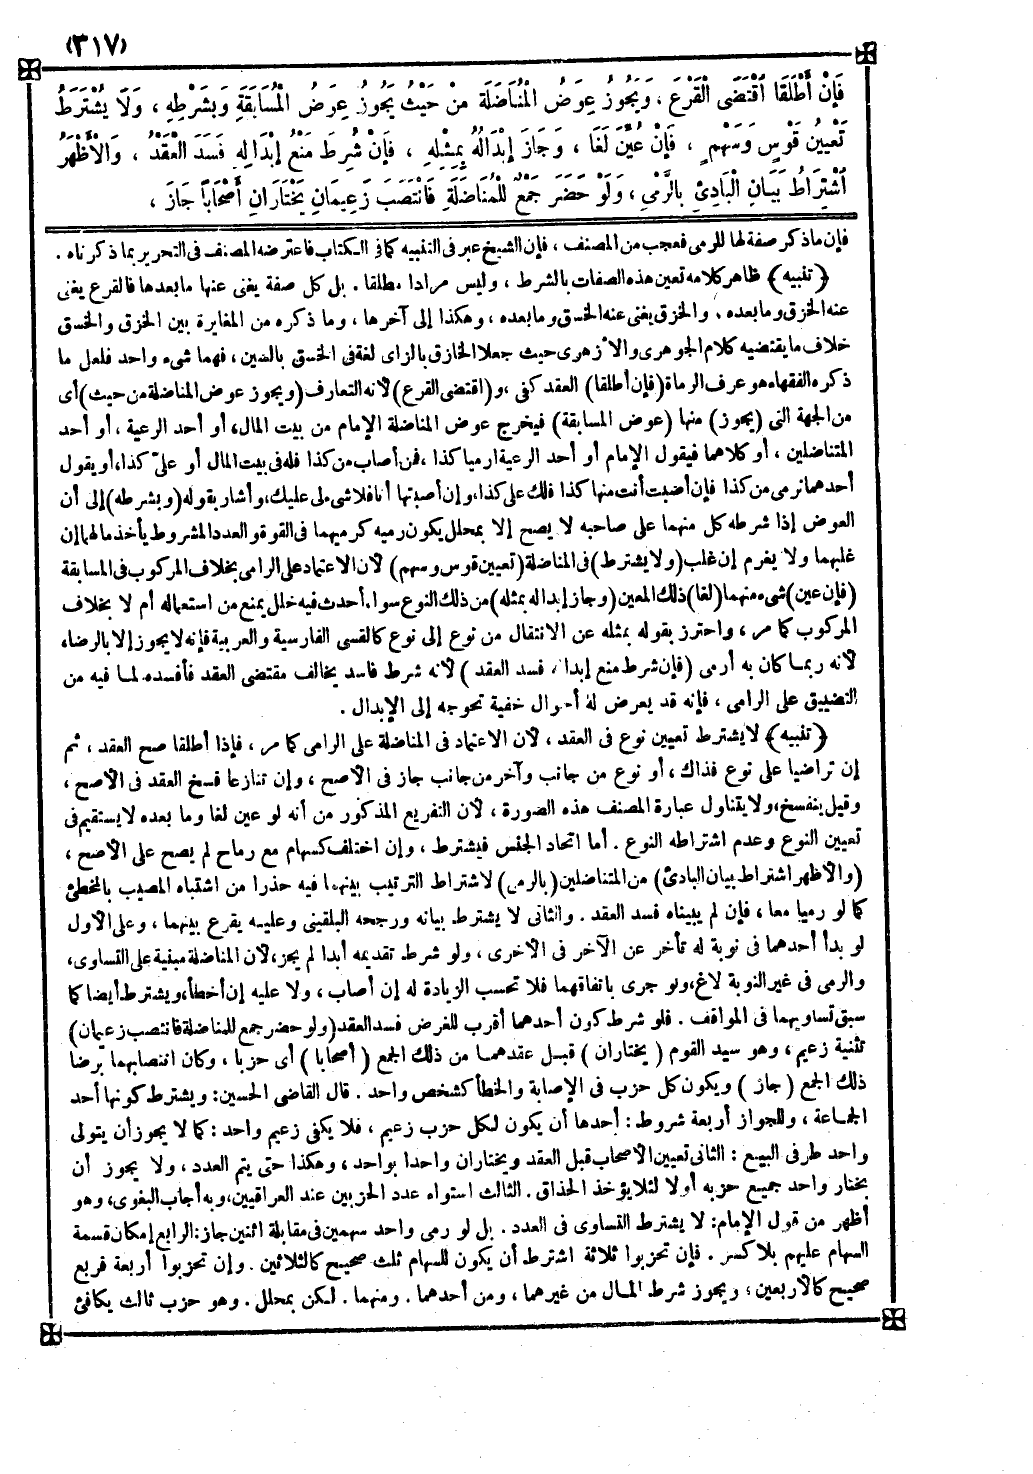 (٣١٧)
فَإِنْ أَطْلَقَا اقْتَضَى الْقَرْعَ ، وَيَجُوزُ عِوَضُ الْمُنَاضَلَةِ مِنْ حَيْثُ يَجُوزُ عِوَضُ الْمُسَابَقَةِ وَبِشَرْطِهِ ، وَلَا يُشْتَرَطُ
تَعْيِينُ قَوْسٍ وَسَهْمٍ ، فَإِنْ عُيِّنَ لَغَا ، وَجَازَ إِبْدَالُهُ بِمِثْلِهِ ، فَإِنْ شُرِطَ مَنْعُ إِبْدَالِهِ فَسَدَ العَقْدُ ، وَالْأَظْهَرُ
اشْتِرَاطُ بَيَانِ الْبَادِئِ بِالرَّمْيِ ، وَلَوْ حَضَرَ جَمْعٌ لِلْمُنَاضَلَةِ فَانْتَصَبَ زَعِيمَانِ يَخْتَارَانِ أَصْحَابًا جَازَ ،
فإن ما ذكر صفة لها للرمى فعجب من المصنف ، فإن الشيخ عبر فى التنبيه كما فى الكتاب فاعترضه المصنف فى التحرير بما ذكرناه .
﴿ تنبيه ﴾ ظاهر كلامه تعين هذه الصفات بالشرط ، وليس مرادا مطلقا . بل كل صفة يغنى عنها ما بعدها فالقرع يغنى
عنه الخزق وما بعده . والخزق يغنى عنه الخسق وما بعده ، وهكذا إلى آخرها ، وما ذكره من المغايرة بين الخزق والخسق
خلاف ما يقتضيه كلام الجوهرى والأزهرى حيث جعلا الخازق بالزاى لغة فى الخسق بالسين ، فهما شىء واحد فلعل ما
ذكره الفقهاء هو عرف الرماة (فإن أطلقا) العقد كفى ، و (اقتضى القرع) لأنه المتعارف (ويجوز عوض المناضلة من حيث) أى
من الجهة التى (يجوز) منها (عوض المسابقة) فيخرج عوض المناضلة الإمام من بيت المال، أو أحد الرعية ، أو أحد
المتناضلين ، أو كلاهما فيقول الإمام أو أحد الرعية ارميا كذا ، فمن أصاب من كذا فله فى بيت المال أو علىّ كذا، أو يقول
أحدهما نرمى من كذا فإن أصبت أنت منها كذا فلك على كذا، وإن أصبتها أنا فلا شىء لى عليك، وأشار بقوله (وبشرطه) إلى أن
العوض إذا شرطه كل منهما على صاحبه لا يصح إلا بمحلل يكون رميه كرميهما فى القوة والعدد المشروط يأخذ مالهما إن
غلبهما ولا يغرم إن غلب (ولا يشترط) فى المناضلة (تعيين قوس وسهم) لأن الاعتماد على الرامى بخلاف المركوب فى المسابقة
(فإن عين) شىء منهما (لغا) ذلك المعين (وجاز إبداله بمثله) من ذلك النوع سواء أحدث فيه خلل يمنع من استعماله أم لا بخلاف
المركوب كما مر ، واحترز بقوله بمثله عن الانتقال من نوع إلى نوع كالقسى الفارسية والعربية فإنه لا يجوز إلا بالرضا،
لأنه ربما كان به أرمى (فإن شرط منع إبداله ، فسد العقد ) لأنه شرط فاسد يخالف مقتضى العقد فأفسده لما فيه من
التضييق على الرامى ، فإنه قد يعرض له أحوال خفية تحوجه إلى الإبدال .
﴿ تنبيه ﴾ لا يشترط تعيين نوع فى العقد ، لأن الاعتماد فى المناضلة على الرامى كما مر ، فإذا أطلقا صح العقد ، ثم
إن تراضيا على نوع فذاك ، أو نوع من جانب وآخر من جانب جاز فى الأصح ، وإن تنازعا فسخ العقد فى الأصح ،
وقيل ينفسخ، ولا يتناول عبارة المصنف هذه الصورة ، لأن التفريع المذكور من أنه لو عين لغا وما بعده لا يستقيم فى
تعيين النوع وعدم اشتراطه النوع . أما اتحاد الجنس فيشترط ، وإن اختلف كسهام مع رماح لم يصح على الأصح ،
(والأظهر اشتراط بيان البادئ) من المتناضلين (بالرمى) لاشتراط الترتيب بينهما فيه حذرا من اشتباه المصيب بالمخطئ
كما لو رميا معا ، فإن لم يبيناه فسد العقد . والثانى لا يشترط بيانه ورجحه البلقينى وعليه يقرع بينهما ، وعلى الأول
لو بدأ أحدهما فى نوبة له تأخر عن الآخر فى الأخرى ، ولو شرط تقديمه أبدا لم يجز، لأن المناضلة مبنية على التساوى،
والرمى فى غير النوبة لاغ، ولو جرى باتفاقهما فلا تحسب الزيادة له إن أصاب ، ولا عليه إن أخطأ، ويشترط أيضا كما
سبق تساويهما فى المواقف . فلو شرط كون أحدهما أقرب للغرض فسد العقد (ولو حضر جمع للمناضلة فانتصب زعيمان)
تثنية زعيم ، وهو سيد القوم ( يختاران ) قبل عقدهما من ذلك الجمع ( أصحابا ) أى حزبا ، وكان انتصابهما برضا
ذلك الجمع ( جاز ) ويكون كل حزب فى الإصابة والخطأ كشخص واحد . قال القاضى الحسين: ويشترط كونها أحد
الجماعة ، وللجواز أربعة شروط : أحدها أن يكون لكل حزب زعيم ، فلا يكفى زعيم واحد : كما لا يجوز أن يتولى
واحد طرفى البيع : الثانى تعيين الأصحاب قبل العقد ويختاران واحدا بواحد ، وهكذا حتى يتم العدد ، ولا يجوز أن
يختار واحد جميع حزبه أولا لئلا يؤخذ الحذاق . الثالث استواء عدد الحزبين عند العراقيين، وبه أجاب البغوى، وهو
أظهر من قول الإمام: لا يشترط التساوى فى العدد . بل لو رمى واحد سهمين فى مقابلة اثنين جاز: الرابع إمكان قسمة
السهام عليهم بلا كسر . فإن تحزبوا ثلاثة اشترط أن يكون للسهام ثلث صحيح كالثلاثين . وإن تحزبوا أربعة فربع
صحيح كالأربعين ؛ ويجوز شرط المال من غيرهما ، ومن أحدهما . ومنهما . لكن بمحلل . وهو حزب ثالث يكافئ